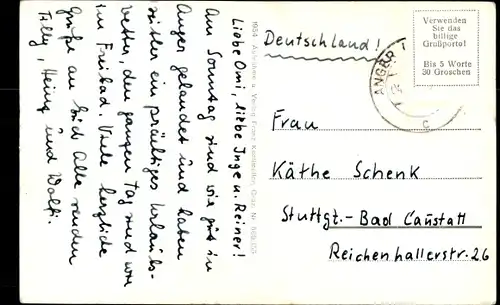 Liebe Omi, liebe Inge u. Reiner!
Am Sonntag sind wir gut in
Anger gelandet und haben
seither ein prächtiges Urlaubs-
wetter, den ganzen Tag sind wir
im Freibad. Viele herzliche
Grüße an Euch Alle senden
Tilly, Heinz und Wolfi.
1954 Aufnahme u. Verlag Franz
Deutschland!
ANGER
Verwenden
Sie das
billige
Grußporto!
Bis 5 Worte
30 Groschen
Frau
Käthe Schenk
Stuttgt.-Bad Canstatt
Reichenhallerstr. 26